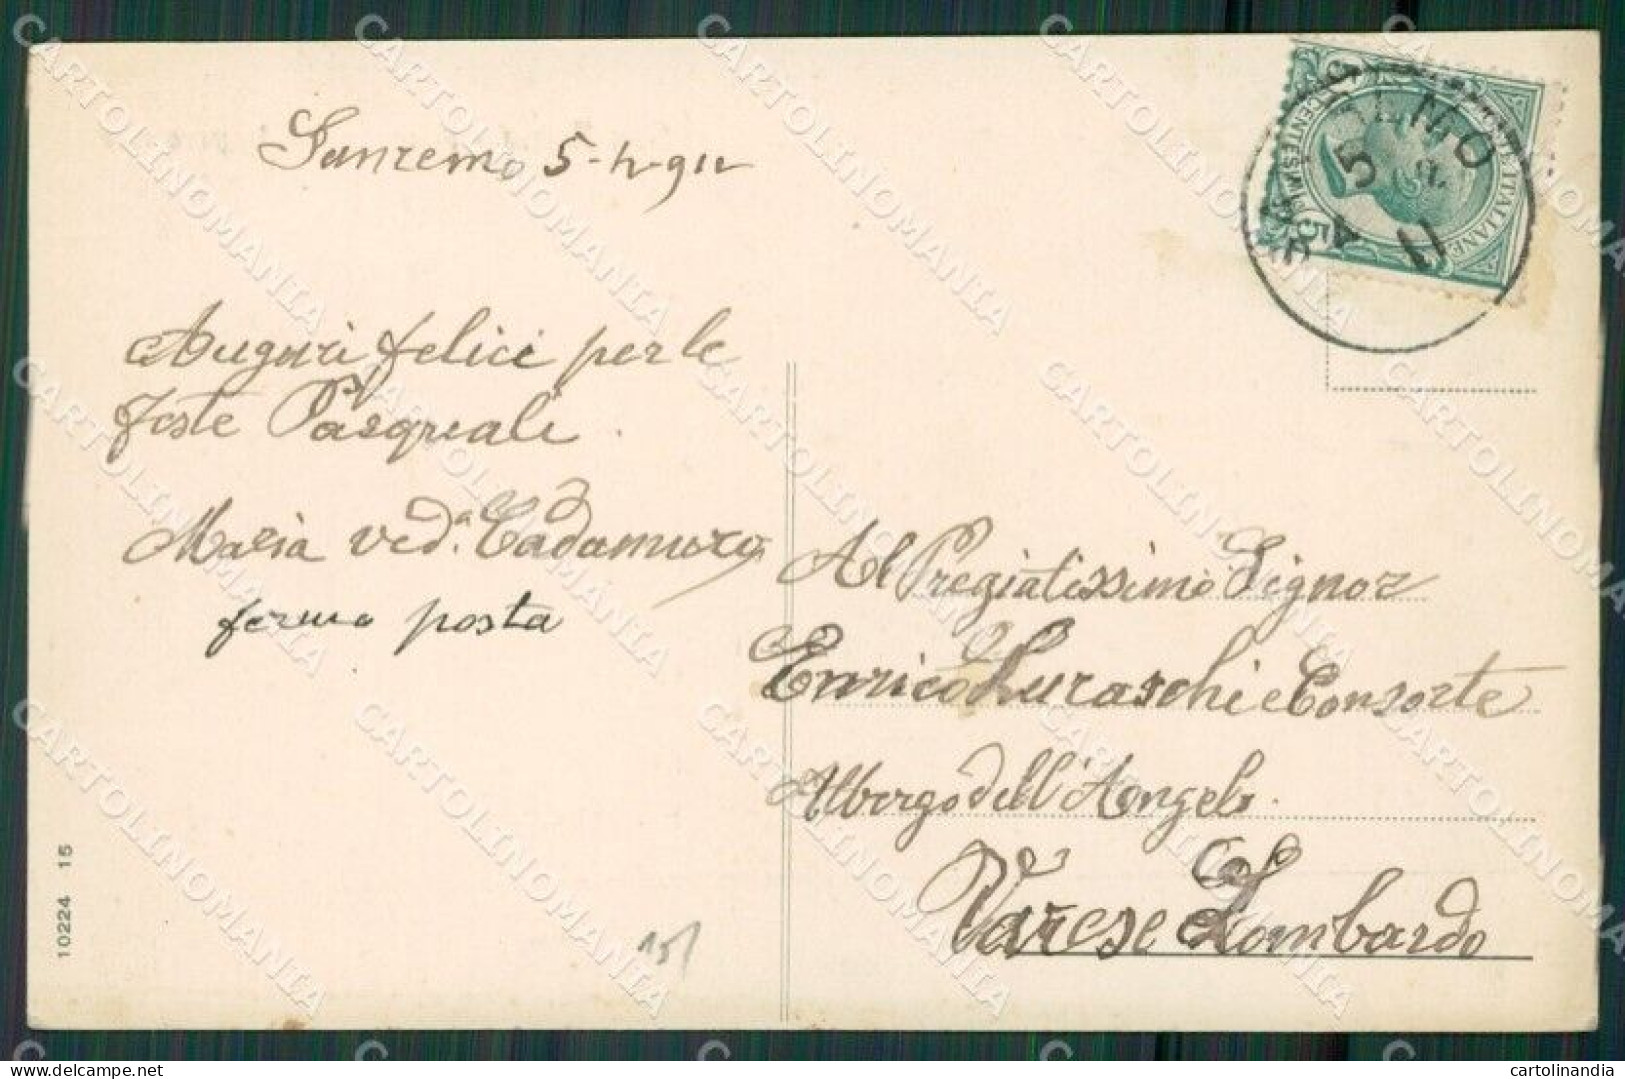 Sanremo 5-4-912
Auguri felici per le
feste Pasquali.
Maria ved.a Cadamuro
fermo posta
Al Pregiatissimo Signor
Enrico Luraschi e Consorte
Albergo dell'Angelo.
Varese Lombardo
10224 15
151
POSTE ITALIANE
CENTESIMI 5
5
CARTOLINOMANIA
cartolinandia